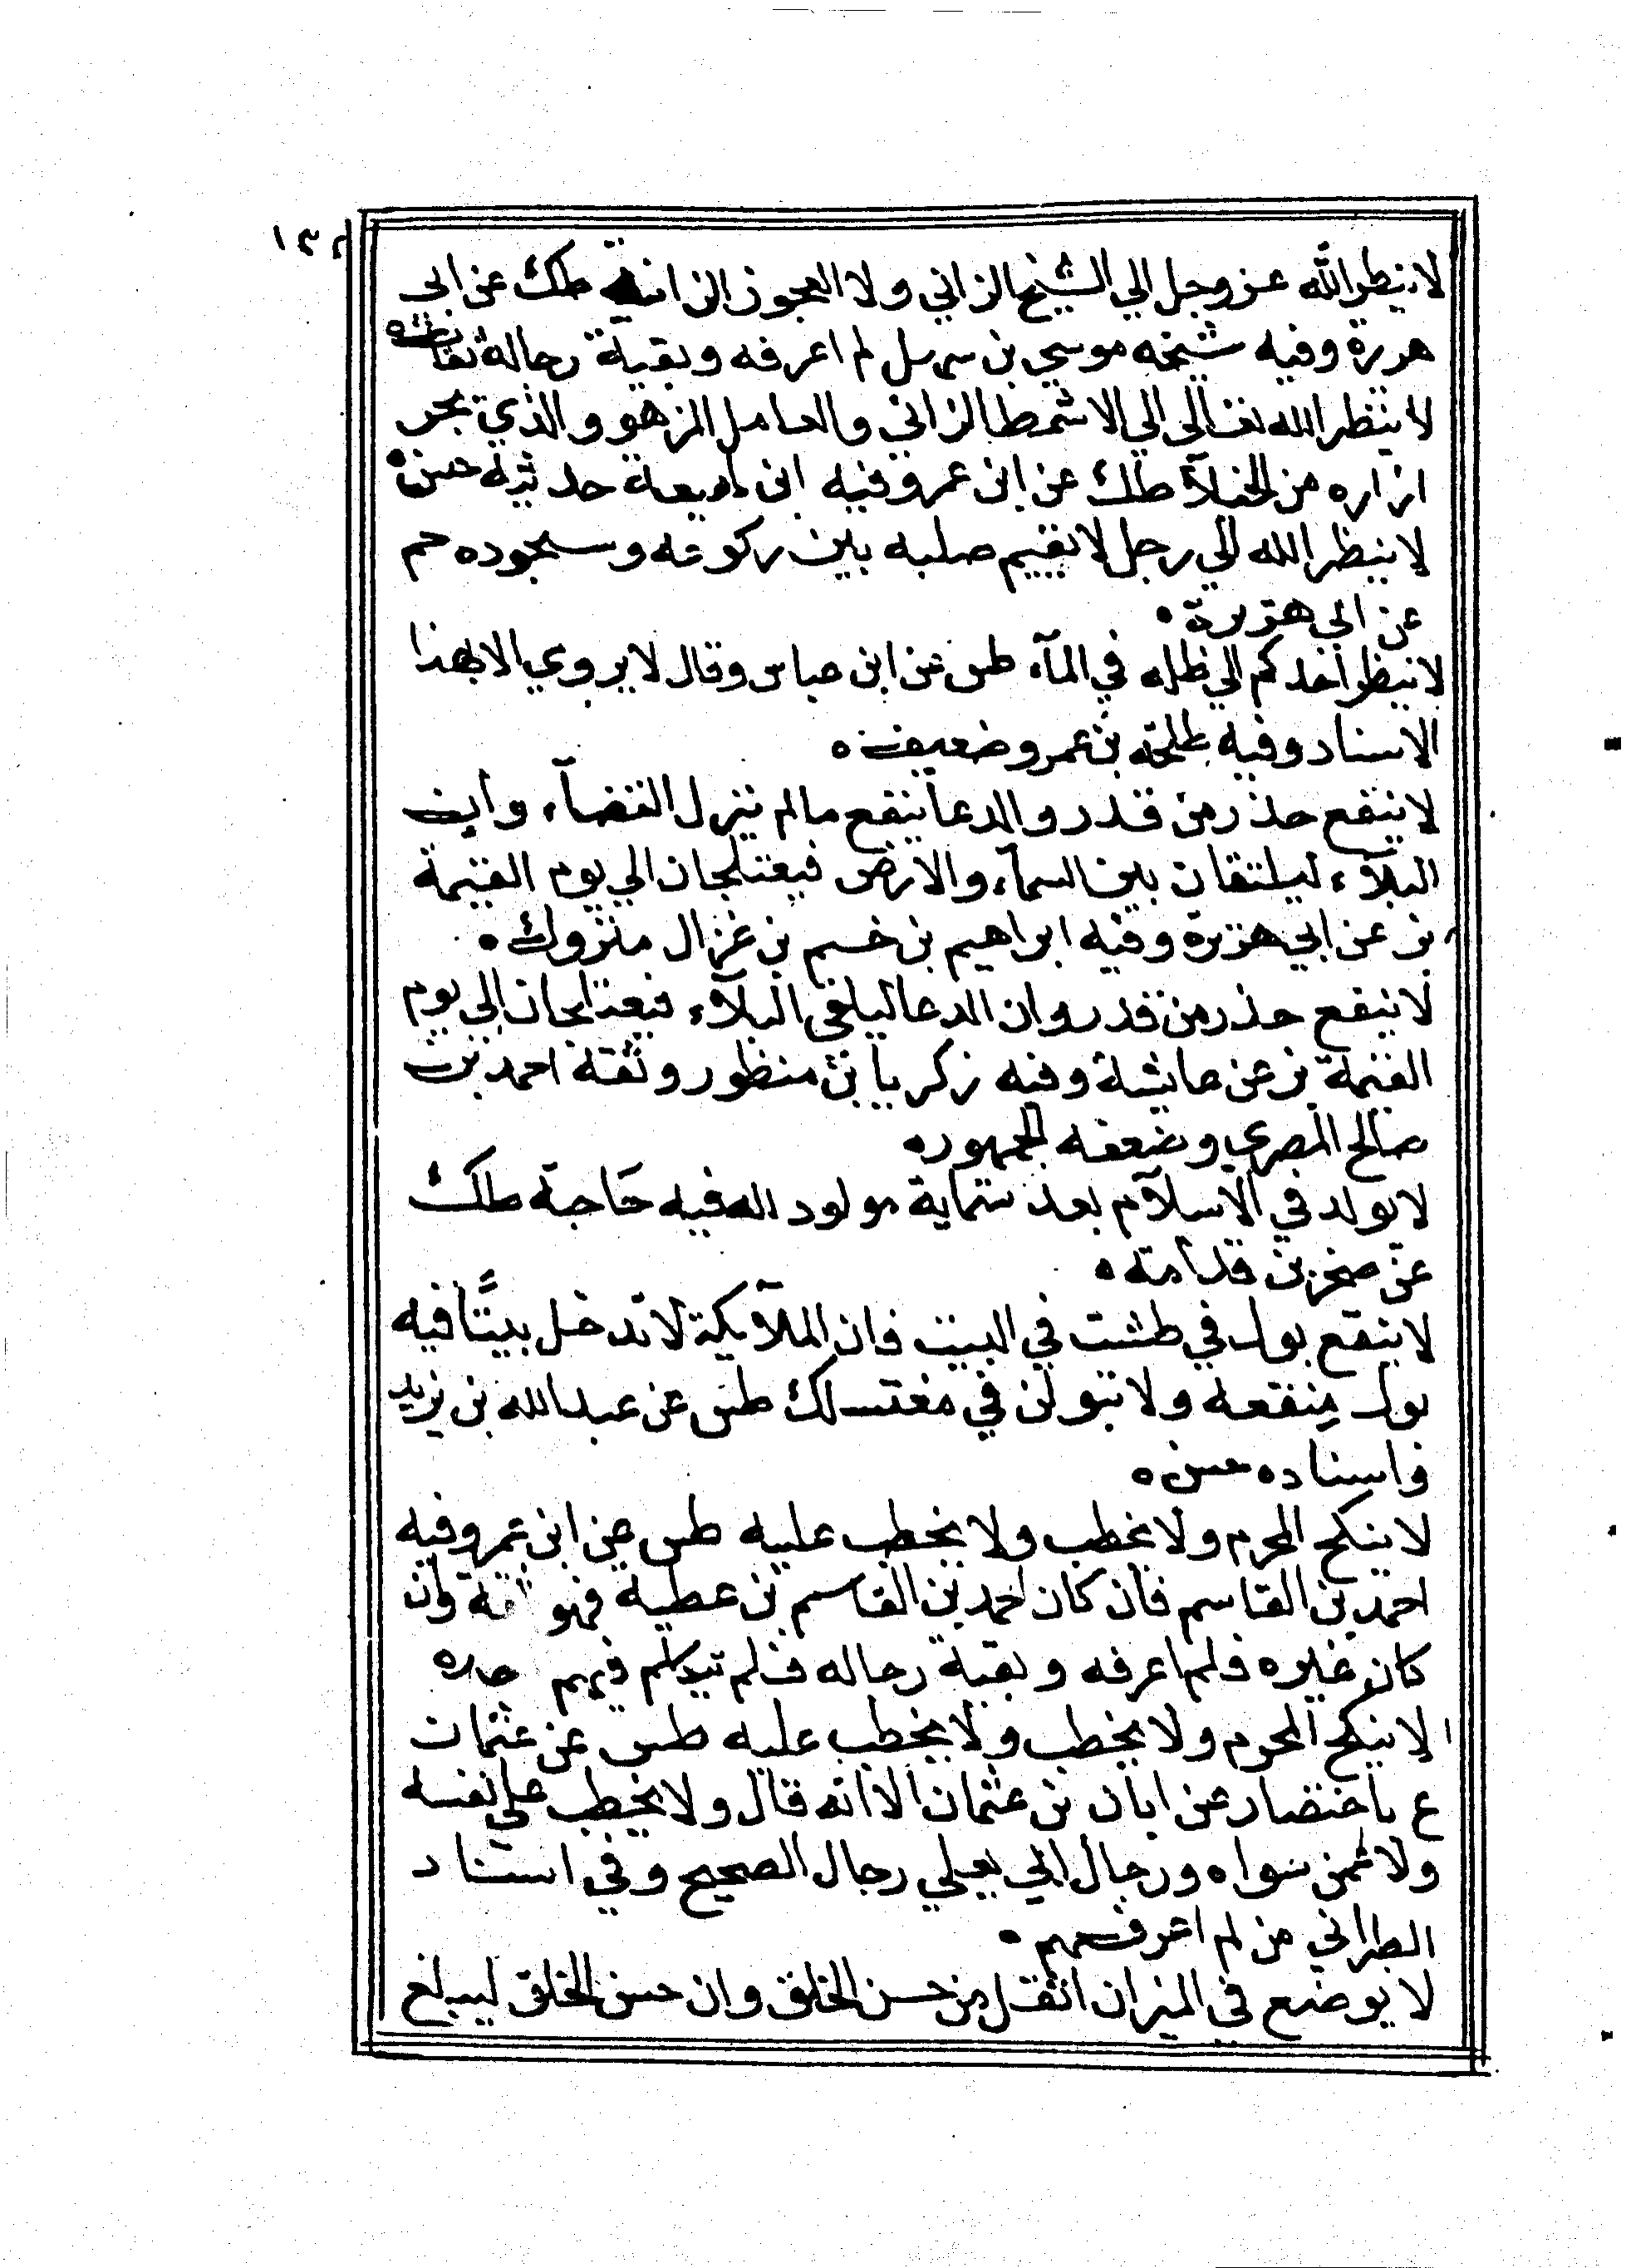 ١٣٢
لا ينظر الله عز وجل الي الشيخ الزاني ولا العجوز الزانية طك عن ابي
هريرة وفيه شيخه موسي بن سهل لم اعرفه وبقية رجاله ثقات
لا ينظر الله تعالى الي الاشمط الزاني والعامل المزهو والذي يجر
ازاره من الخيلآ طك عن ابن عمر وفيه ابن لهيعة حديثه حسن
لا ينظر الله الي رجل لا يقيم صلبه بين ركوعه وسجوده حم
عن ابي هريرة
لا ينظر احدكم الي ظله في المآء طس عن ابن عباس وقال لا يروي الا بهذا
الاسناد وفيه طلحة بن عمرو ضعيف
لا ينفع حذر من قدر والدعا ينفع مالم ينزل القضآء وان
البلآء ليلتقان بين السمآء والارض فيعتلجان الي يوم القيمة
بز عن ابي هريرة وفيه ابراهيم بن خسيم بن غزال متروك
لا ينفع حذر من قدر وان الدعا ليلقى البلآء فيعتلجان الي يوم
القيمة بز عن عايشة وفيه زكريا بن منظور وثقة احمد بن
صالح المصري وضعفه الجمهور
لا يولد في الاسلآم بعد ستماية مولود لله فيه حاجة طك
عن صخر بن قدامة
لا ينقع بول في طشت في البيت فان الملآيكة لا تدخل بيتًا فيه
بول منقعه ولا تبولن في مغتسلك طس عن عبد الله بن يزيد
واسناده حسن
لا ينكح المحرم ولا يخطب ولا يخطب عليه طس عن ابن عمر وفيه
احمد بن القاسم فان كان احمد بن القاسم بن عطية فهو وان
كان غيره فلم اعرفه وبقية رجاله فلم يتكلم فيهم
لا ينكح المحرم ولا يخطب ولا يخطب عليه طس عن عثمان
ع باختصار عن ابان بن عثمان الا انه قال ولا يخطب علي نفسه
ولا لمن سواه ورجال ابي يعلي رجال الصحيح وفي اسناد
الطبراني من لم اعرفهم
لا يوضع في الميزان اثقل من حسن الخلق وان حسن الخلق ليبلغ